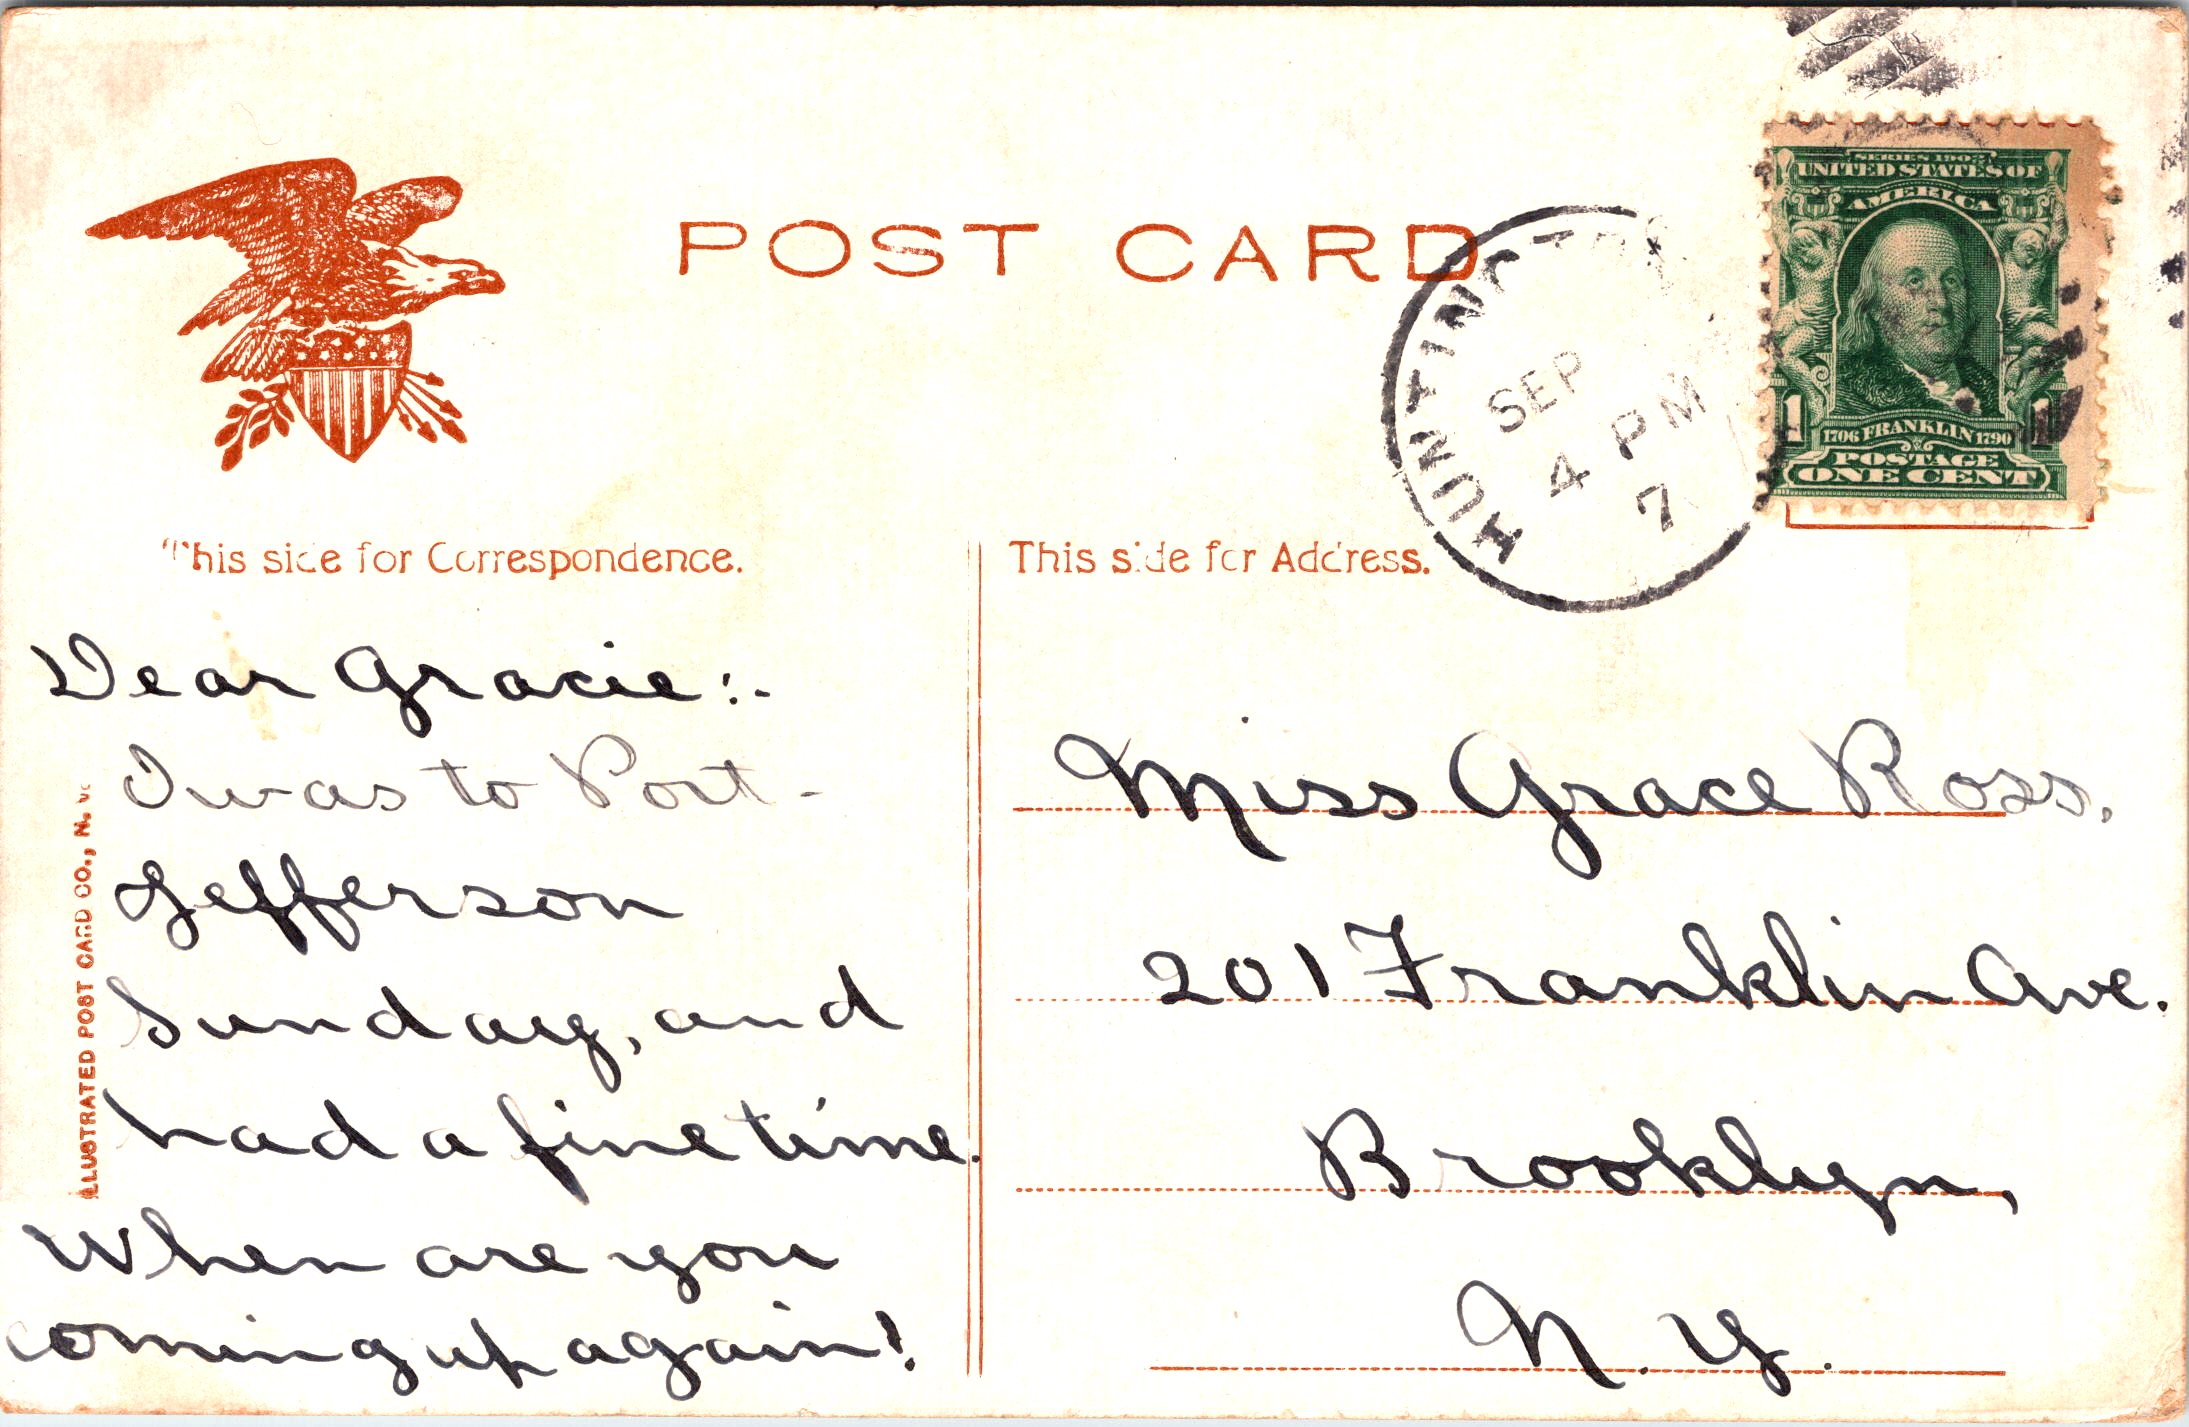 POST CARD
HUNTINGT
SEP
4 PM
7
SERIES 1902
UNITED STATES OF
AMERICA
1 1
1706 FRANKLIN 1790
POSTAGE
ONE CENT
This side for Correspondence.
This side for Address.
Dear Gracie:-
I was to Port-
Jefferson
Sunday, and
had a fine time.
When are you
coming up again!
Miss Grace Ross.
201 Franklin Ave.
Brooklyn,
N.Y.
ILLUSTRATED POST CARD CO., N.Y.